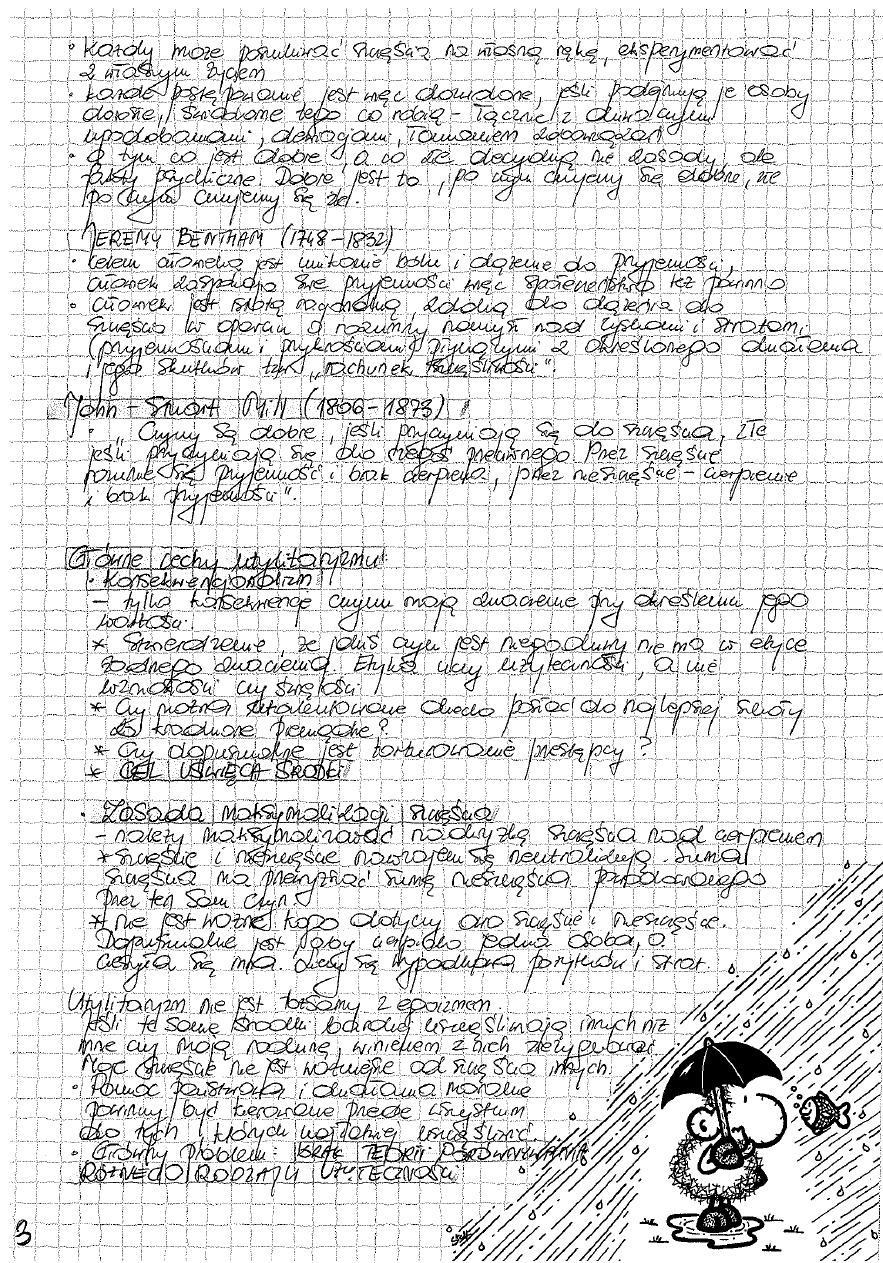 • Każdy może poszukiwać szczęścia na własną rękę, eksperymentować
z własnym życiem
• każde postępowanie jest więc dozwolone, jeśli podejmują je osoby
dorosłe, świadome tego co robią - łącznie z
upodobaniami, łamaniem
• O tym co jest dobre, a co złe decydują nie zasady, ale
fakty psychiczne. Dobre jest to, po czym czujemy się dobrze, złe
po czym czujemy się źle.
JEREMY BENTHAM (1748-1832)
• Celem człowieka jest unikanie bólu i dążenie do przyjemności,
człowiek zaspokaja swe przyjemności więc społeczeństwo też powinno
• Człowiek jest istotą racjonalną, zdolną do dążenia do
szczęścia w oparciu o rozumny namysł nad zyskami i stratami
(przyjemnościami i przykrościami) płynącymi z określonego działania
i jego skutków tzw. „rachunek szczęśliwości".
John - Stuart Mill (1806-1873)
• „Czyny są dobre, jeśli przyczyniają się do szczęścia, złe
jeśli przyczyniają się do czegoś przeciwnego. Przez szczęście
rozumie się przyjemność i brak cierpienia, przez nieszczęście - cierpienie
i brak przyjemności".
Główne cechy utylitaryzmu
• Konsekwencjonalizm
- tylko konsekwencje czynu mają znaczenie przy określeniu jego
wartości.
* Stwierdzenie, że jakiś czyn jest niegodziwy nie ma w etyce
żadnego znaczenia. Etyka uczy użyteczności, a nie
wzniosłości czy świętości
* Czy można utalentowane dziecko posłać do najlepszej szkoły
za kradzione pieniądze?
* Czy dopuszczalne jest torturowanie przestępcy?
* CEL UŚWIĘCA ŚRODKI
• Zasada maksymalizacji szczęścia
- należy maksymalizować nadwyżkę szczęścia nad cierpieniem
* szczęście i nieszczęście nawzajem się neutralizują. Suma
szczęścia ma przewyższać sumę nieszczęścia powodowanego
przez ten sam czyn
* nie jest ważne kogo dotyczy owo szczęście i nieszczęście.
Dopuszczalne jest, aby cierpiała jedna osoba, a
cieszyła się inna. Liczy się wypadkowa pożytków i strat.
Utylitaryzm nie jest tożsamy z egoizmem.
Jeśli te same środki bardziej uszczęśliwiają innych niż
mnie czy moją rodzinę, winienem z nich zrezygnować
Moje szczęście nie jest ważniejsze od szczęścia innych.
• Pomoc państwowa i działania moralne
powinny być kierowane przede wszystkim
do tych, których najłatwiej uszczęśliwić.
• Główny problem: BRAK TEORII PORÓWNYWANIA
RÓŻNEGO RODZAJU UŻYTECZNOŚCI
3